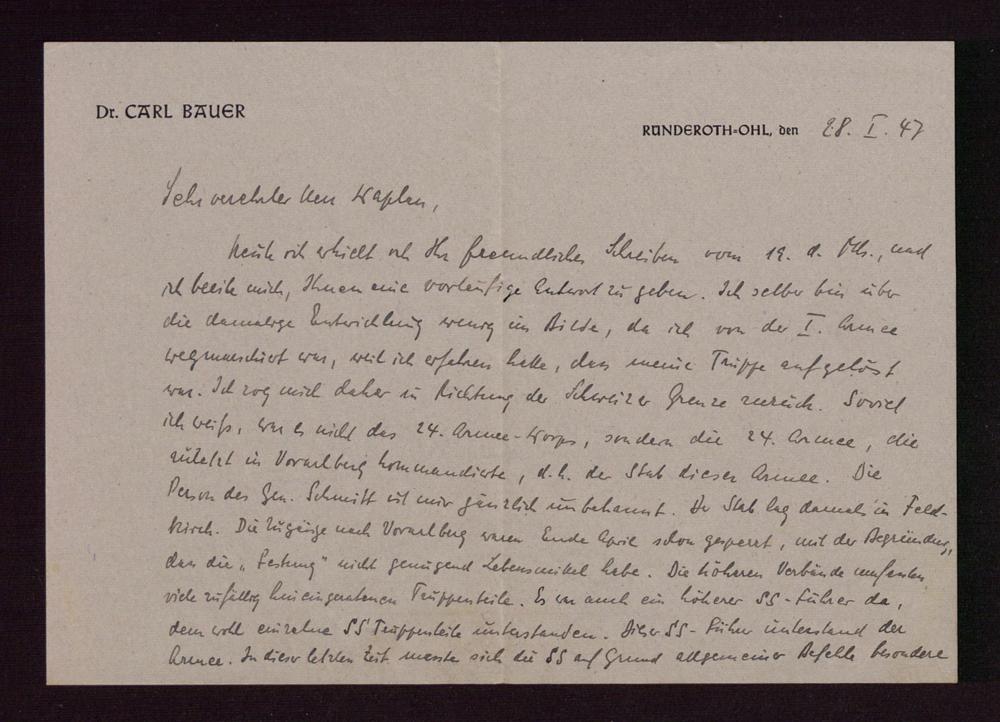 Dr. CARL BAUER
RÜNDEROTH-OHL, den 28. I. 47
Sehr verehrter Herr Kaplan,
Heute erhielt ich Ihr freundliches Schreiben vom 19. d. Mts., und
ich beeile mich, Ihnen eine vorläufige Antwort zu geben. Ich selber bin über
die damalige Entwicklung wenig im Bilde, da ich von der I. Armee
wegmarschiert war, weil ich erfahren hatte, dass meine Truppe aufgelöst
war. Ich zog mich daher in Richtung der Schweizer Grenze zurück. Soviel
ich weiß, war es nicht das 24. Armee-Korps, sondern die 24. Armee, die
zuletzt in Vorarlberg kommandierte, d.h. der Stab dieser Armee. Die
Person des Gen. Schmitt ist mir gänzlich unbekannt. Der Stab lag damals in Feld-
kirch. Die Zugänge nach Vorarlberg waren Ende April schon gesperrt, mit der Begründung,
dass die „Festung" nicht genügend Lebensmittel habe. Die höheren Verbände umfassten
viele zufällig hineingeratenen Truppenteile. Es war auch ein höherer SS-Führer da,
dem wohl einzelne SS Truppenteile unterstanden. Dieser SS-Führer unterstand der
Armee. In dieser letzten Zeit musste sich die SS auf Grund allgemeiner Befehle besondere